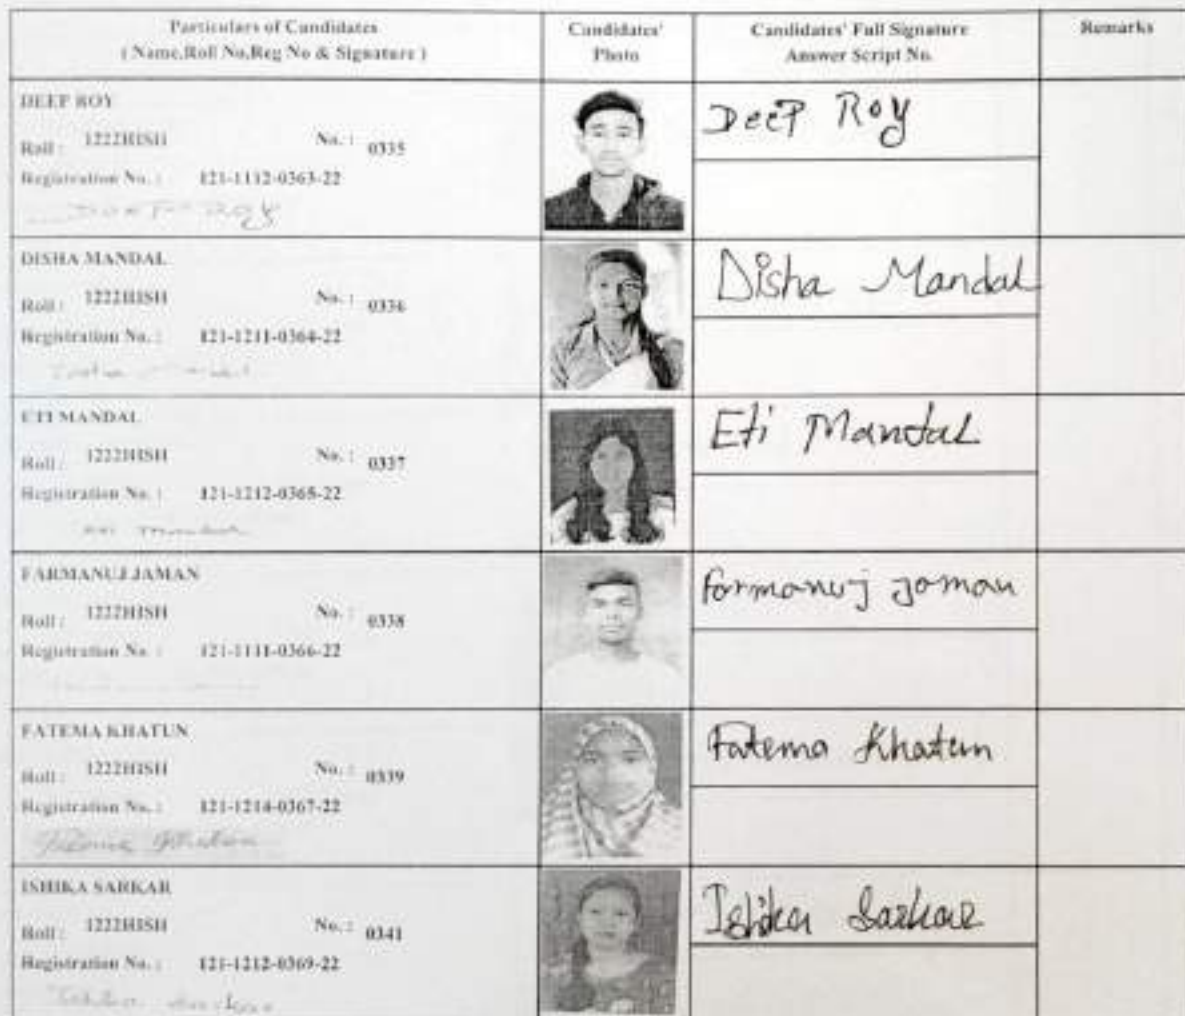 Particulars of Candidates
( Name,Roll No,Reg No & Signature )
Candidates'
Photo
Candidates' Full Signature
Answer Script No.
Remarks
DEEP ROY
Roll : 1222HISH No. : 0335
Registration No. : 121-1112-0363-22
DEEP ROY
Deep Roy
DISHA MANDAL
Roll : 1222HISH No. : 0336
Registration No. : 121-1211-0364-22
Disha Mandal
ETI MANDAL
Roll : 1222HISH No. : 0337
Registration No. : 121-1212-0365-22
Eti Mandal
Eti Mandal
FARMANUJ JAMAN
Roll : 1222HISH No. : 0338
Registration No. : 121-1111-0366-22
Farmanuj Jaman
FATEMA KHATUN
Roll : 1222HISH No. : 0339
Registration No. : 121-1214-0367-22
Fatema Khatun
Fatema Khatun
ISHIKA SARKAR
Roll : 1222HISH No. : 0341
Registration No. : 121-1212-0369-22
Ishika Sarkar
Ishika Sarkar